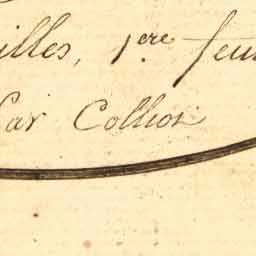 illes, 1.ere feui
Par Colliot